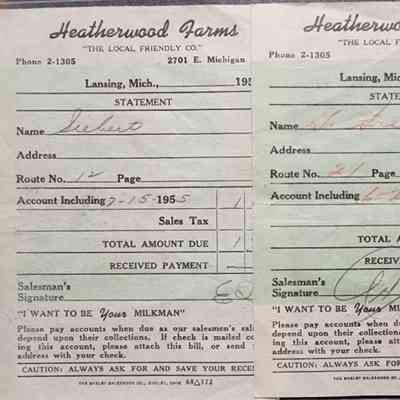 Heatherwood Farms
"THE LOCAL FRIENDLY CO."
Phone 2-1305 2701 E. Michigan
Lansing, Mich., 195
STATEMENT
Name Siebert
Address
Route No. 12 Page
Account Including 7-15-1955
Sales Tax
TOTAL AMOUNT DUE
RECEIVED PAYMENT
Salesman's
Signature
"I WANT TO BE Your MILKMAN"
Please pay accounts when due as our salesmen's sal
depend upon their collections. If check is mailed co
ing this account, please attach this bill, or send
address with your check.
CAUTION: ALWAYS ASK FOR AND SAVE YOUR RECE
Heatherwoo
"THE LOCAL FR
Phone 2-1305
Lansing, Mi
STATE
Name
Address
Route No. 21 Page
Account Including
Sal
TOTAL A
RECEIV
Salesman's
Signature
"I WANT TO BE Your
Please pay accounts when du
depend upon their collection
ing this account, please atta
address with your check.
CAUTION: ALWAYS ASK F